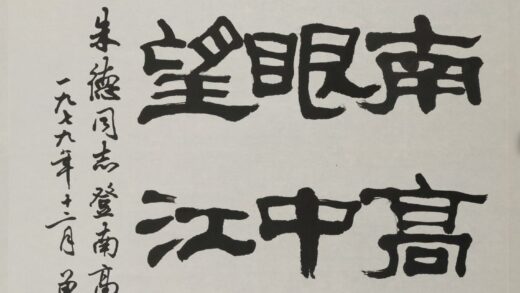 南高
眼中
望江
朱德同志登南高
一九七九年十二月